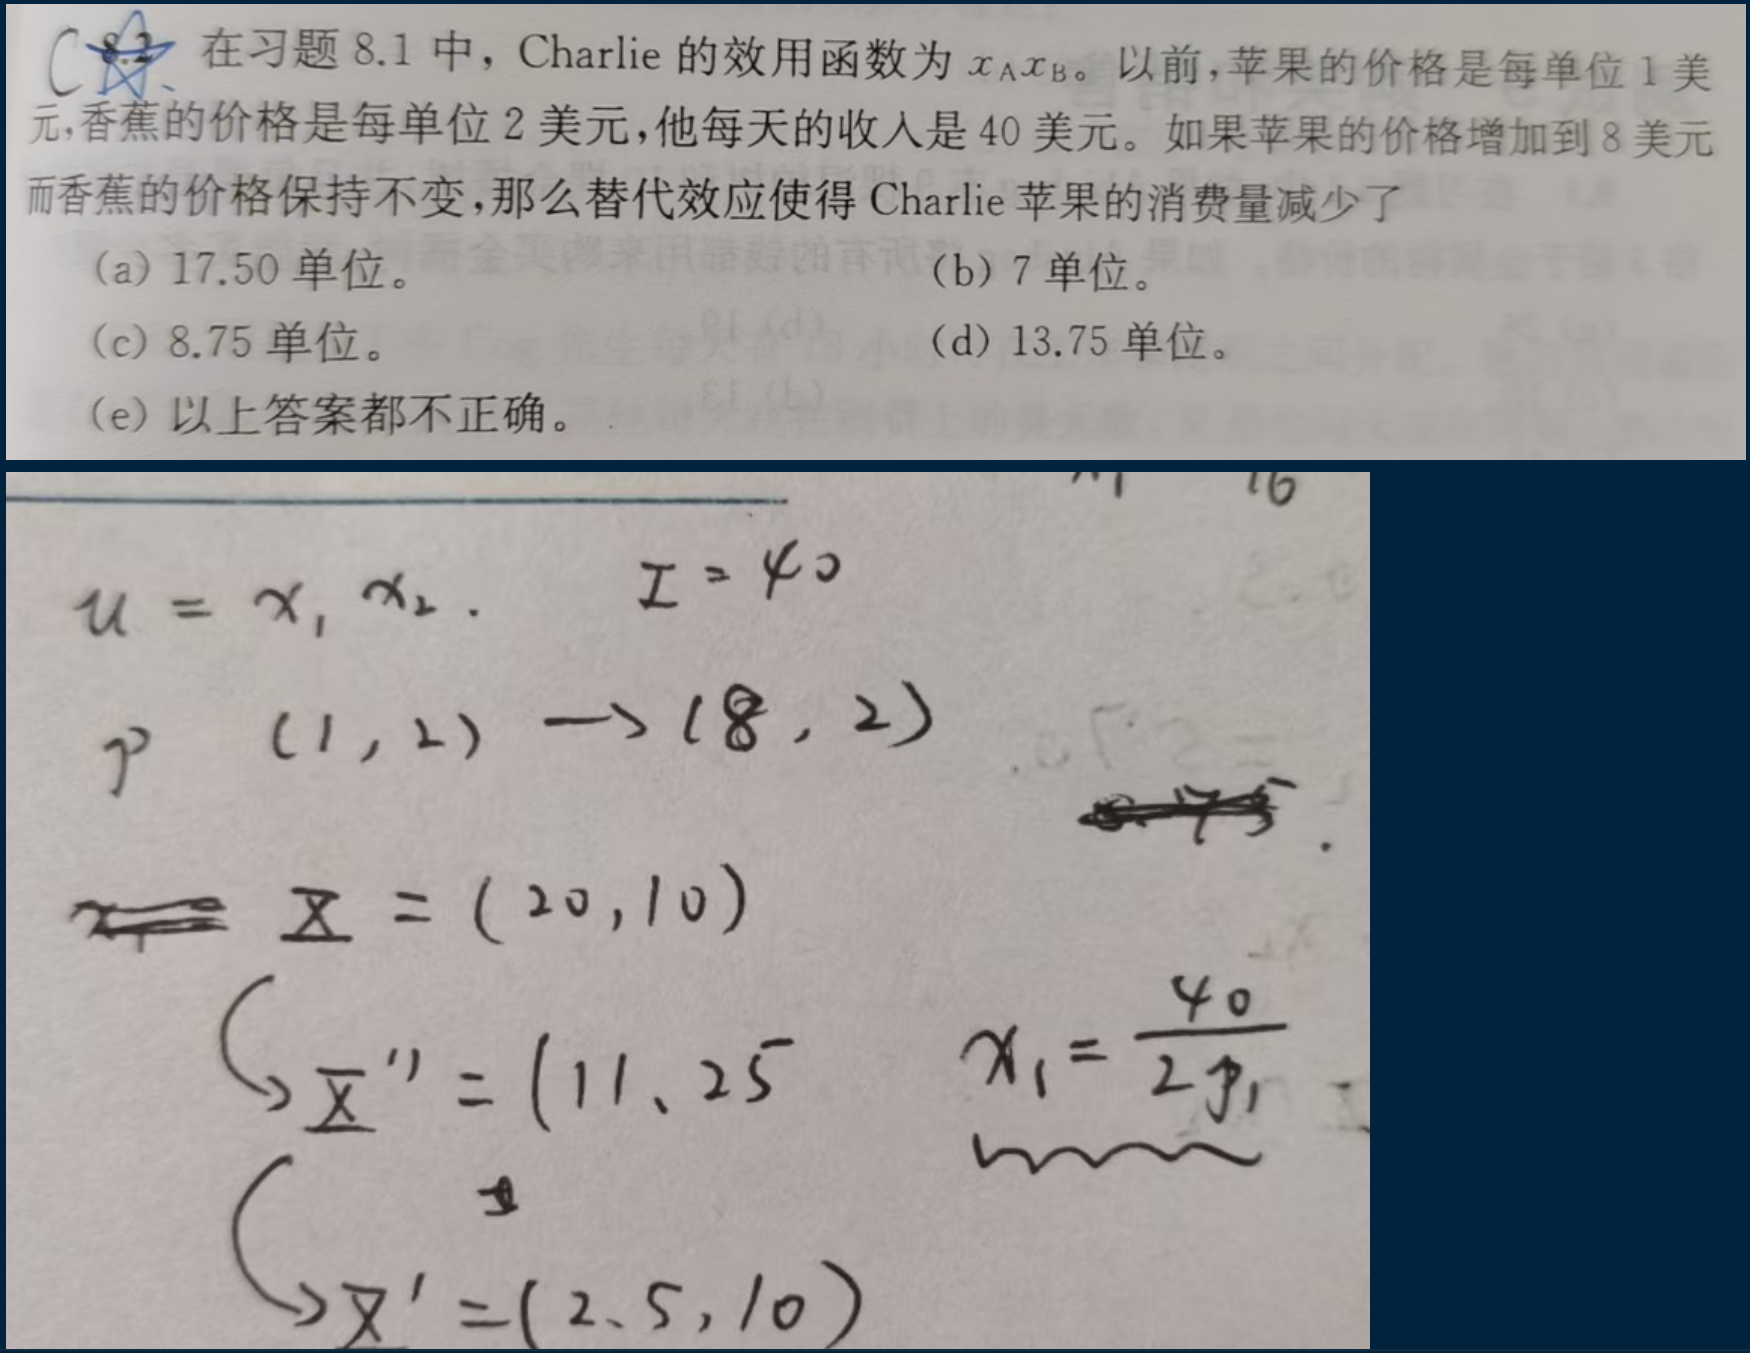 C 8.2 在习题 8.1 中，Charlie 的效用函数为 xAxB。以前，苹果的价格是每单位 1 美
元，香蕉的价格是每单位 2 美元，他每天的收入是 40 美元。如果苹果的价格增加到 8 美元
而香蕉的价格保持不变，那么替代效应使得 Charlie 苹果的消费量减少了
(a) 17.50 单位。 (b) 7 单位。
(c) 8.75 单位。 (d) 13.75 单位。
(e) 以上答案都不正确。
16
u = x₁ x₂. I = 40
p (1, 2) → (8, 2)
X = (20, 10)
X'' = (11、25
x₁ = 40 / 2p₁
X' = (2、5, 10)